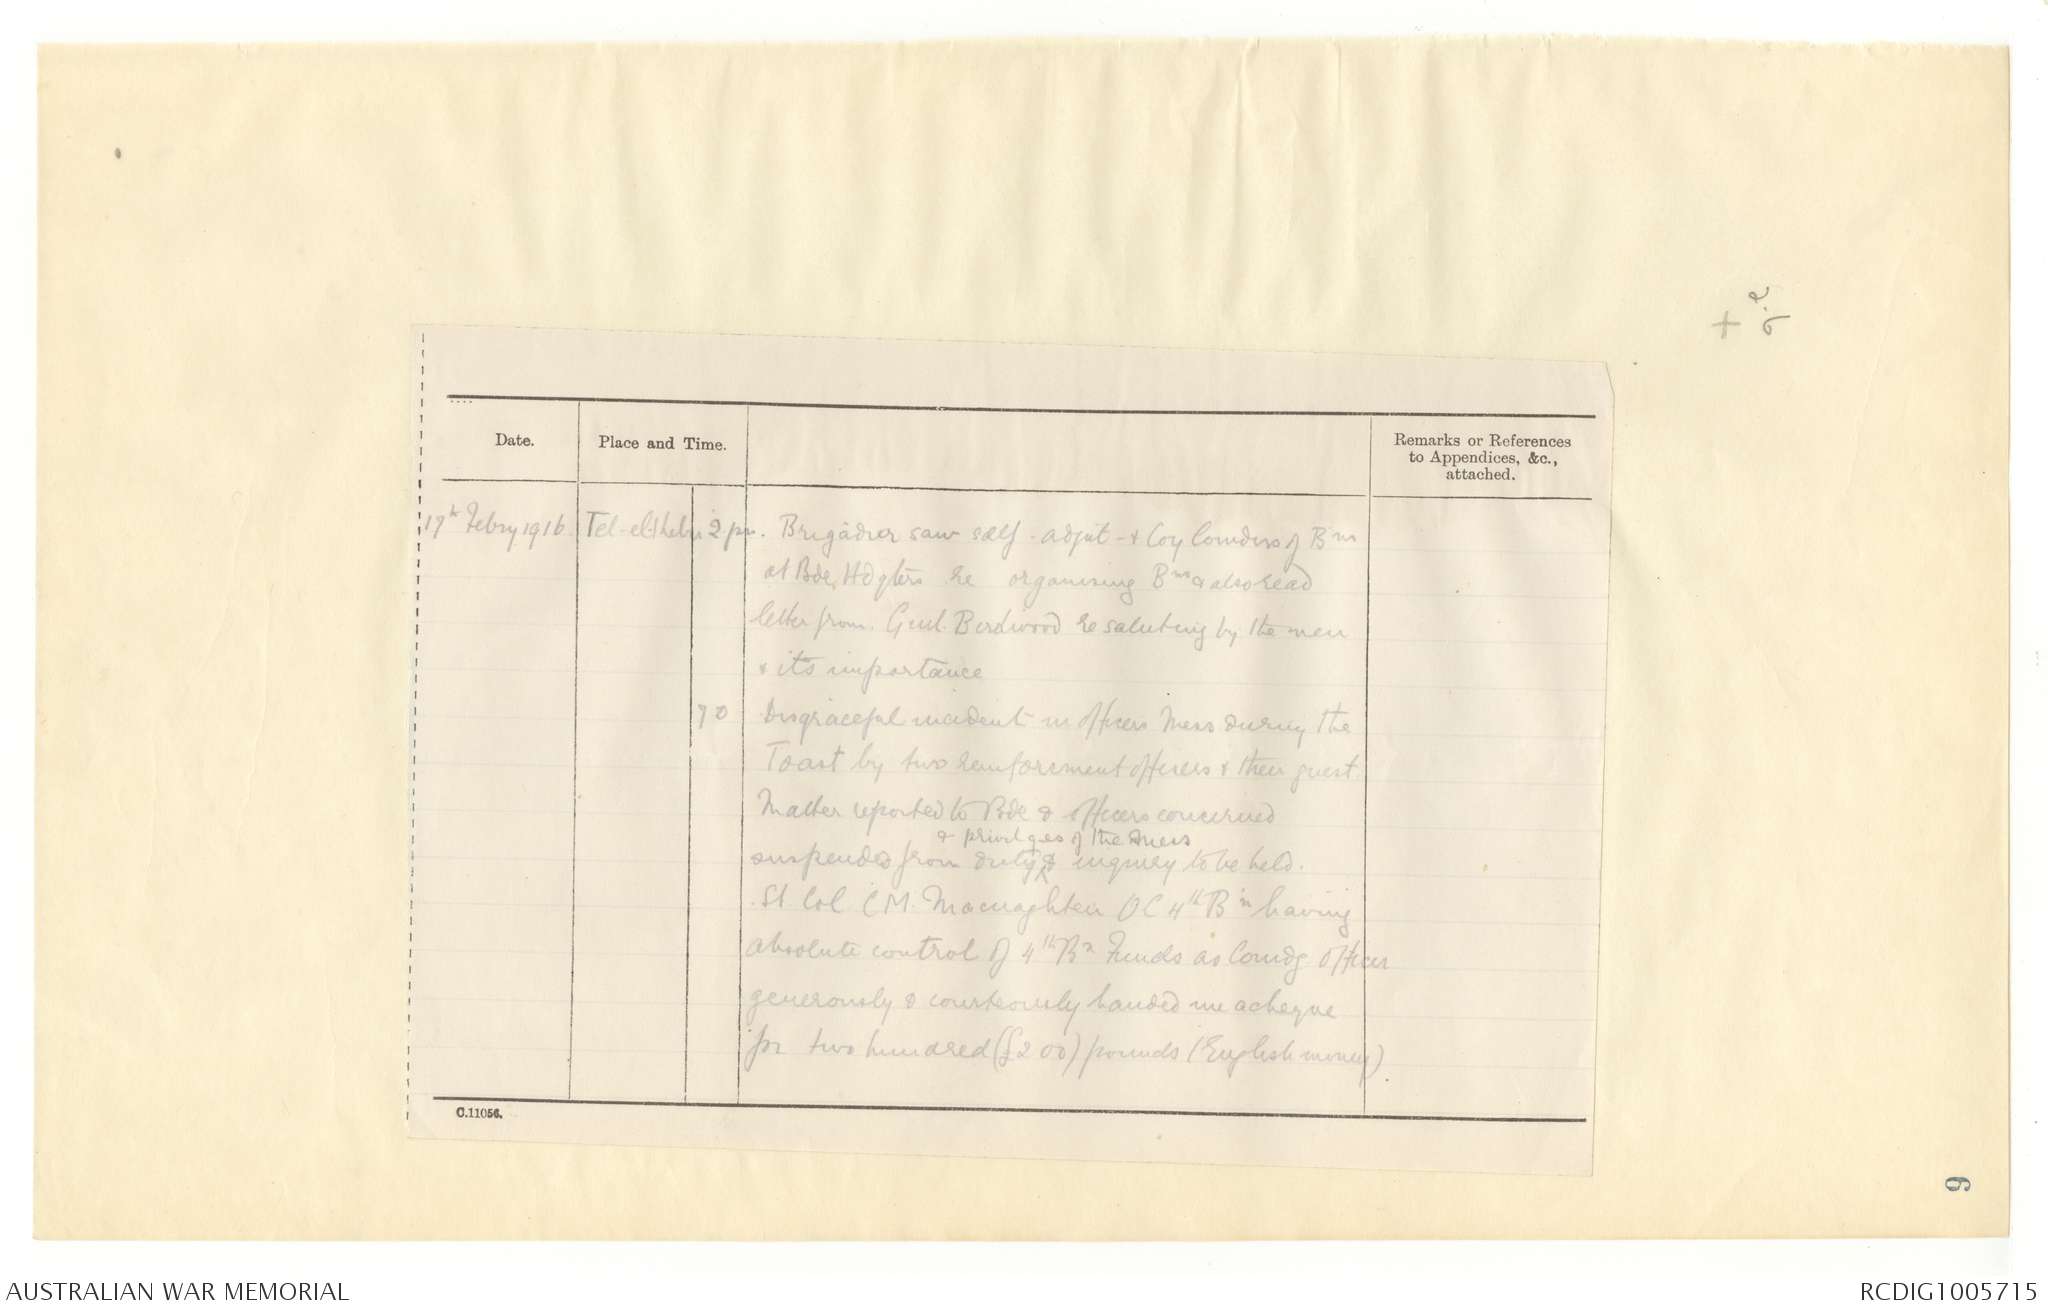 Date.
Place and Time.
Remarks or References
to Appendices, &c.,
attached.
17th Febry 1916. Tel-el-Kebir 2 pm. Brigadier saw self - adjut - & Coy Comdrs of Bns
at Bde, Hdqters re organising Bns & also read
letter from. Genl. Birdwood re saluting by the men
& its importance
70 Disgraceful incident in officers mess during the
Toast by two reinforcement officers & their guest.
Matter reported to Bde & officers concerned
& privilges of the mess
suspended from duty & inquiry to be held.
Lt Col C M. Macnaghten OC 4th Bn having
absolute control of 4th Bn Funds as Comdg officer
generously & courteously handed me a cheque
for two hundred (£200) pounds (English money)
C.11056.
9
AUSTRALIAN WAR MEMORIAL
RCDIG1005715